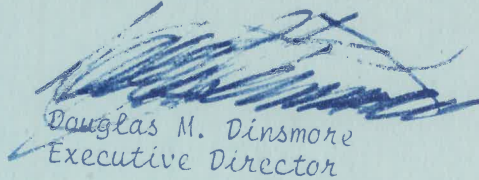 Douglas M. Dinsmore
Executive Director